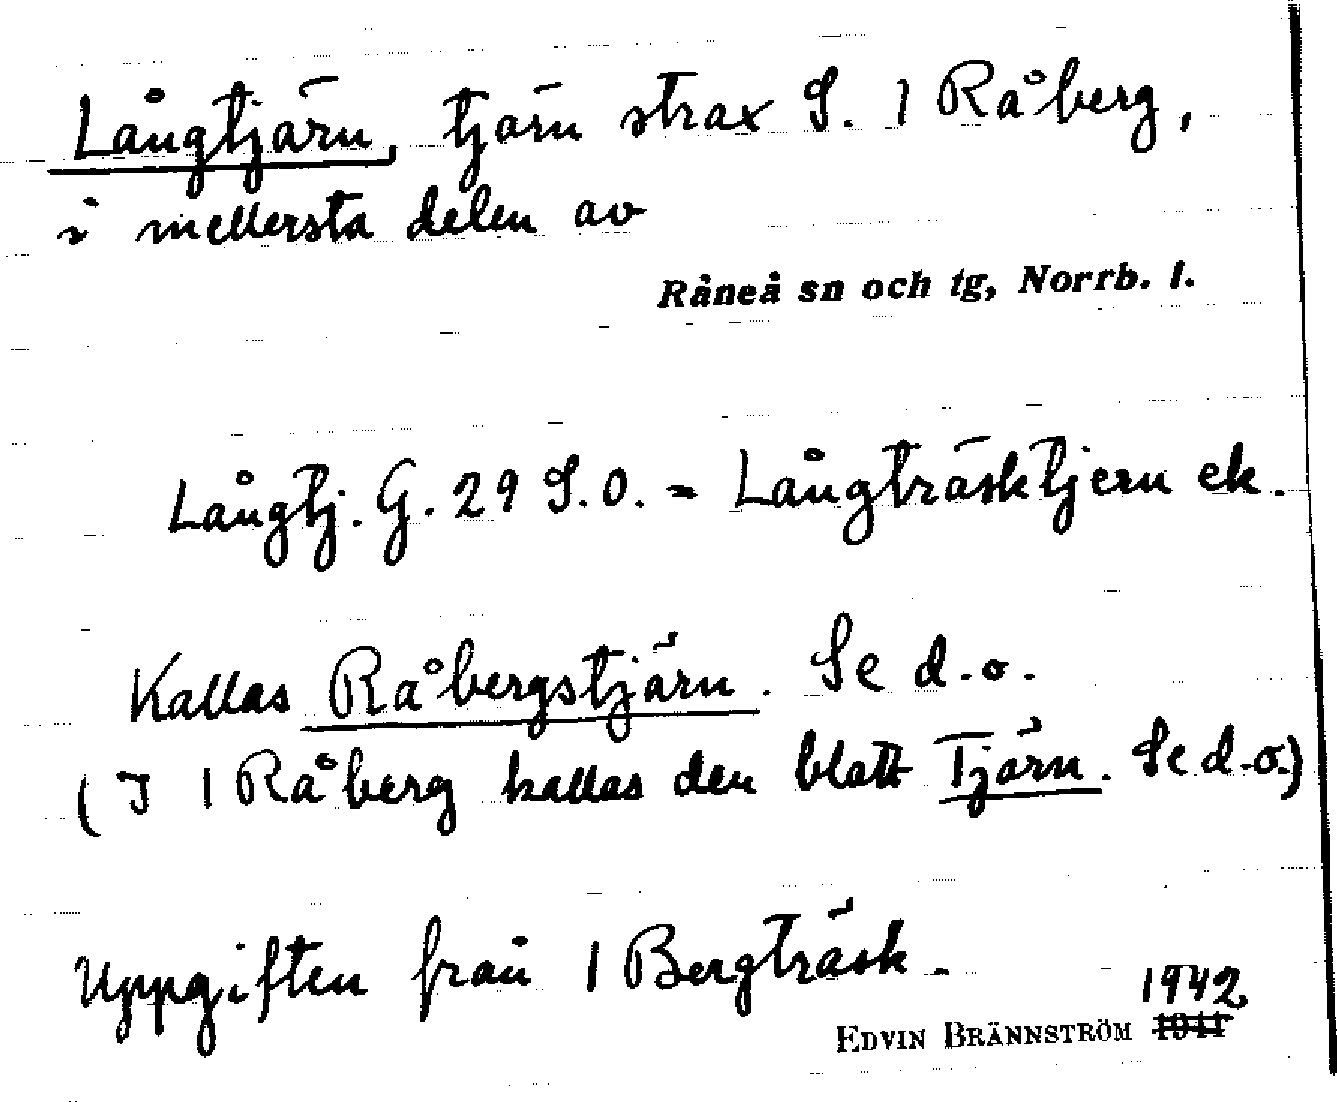 Långtjärn, tjärn strax S. 1 Råberg,
i mellersta delen av
Råneå sn och tg, Norrb. l.
Långtj. G. 29 S.O. = Långträsktjern ek.
Kallas Råbergstjärn. Se d.o.
(I 1 Råberg kallas den blott Tjärn. Se d.o.)
Uppgiften från 1 Bergträsk.
1942
EDVIN BRÄNNSTRÖM 1941